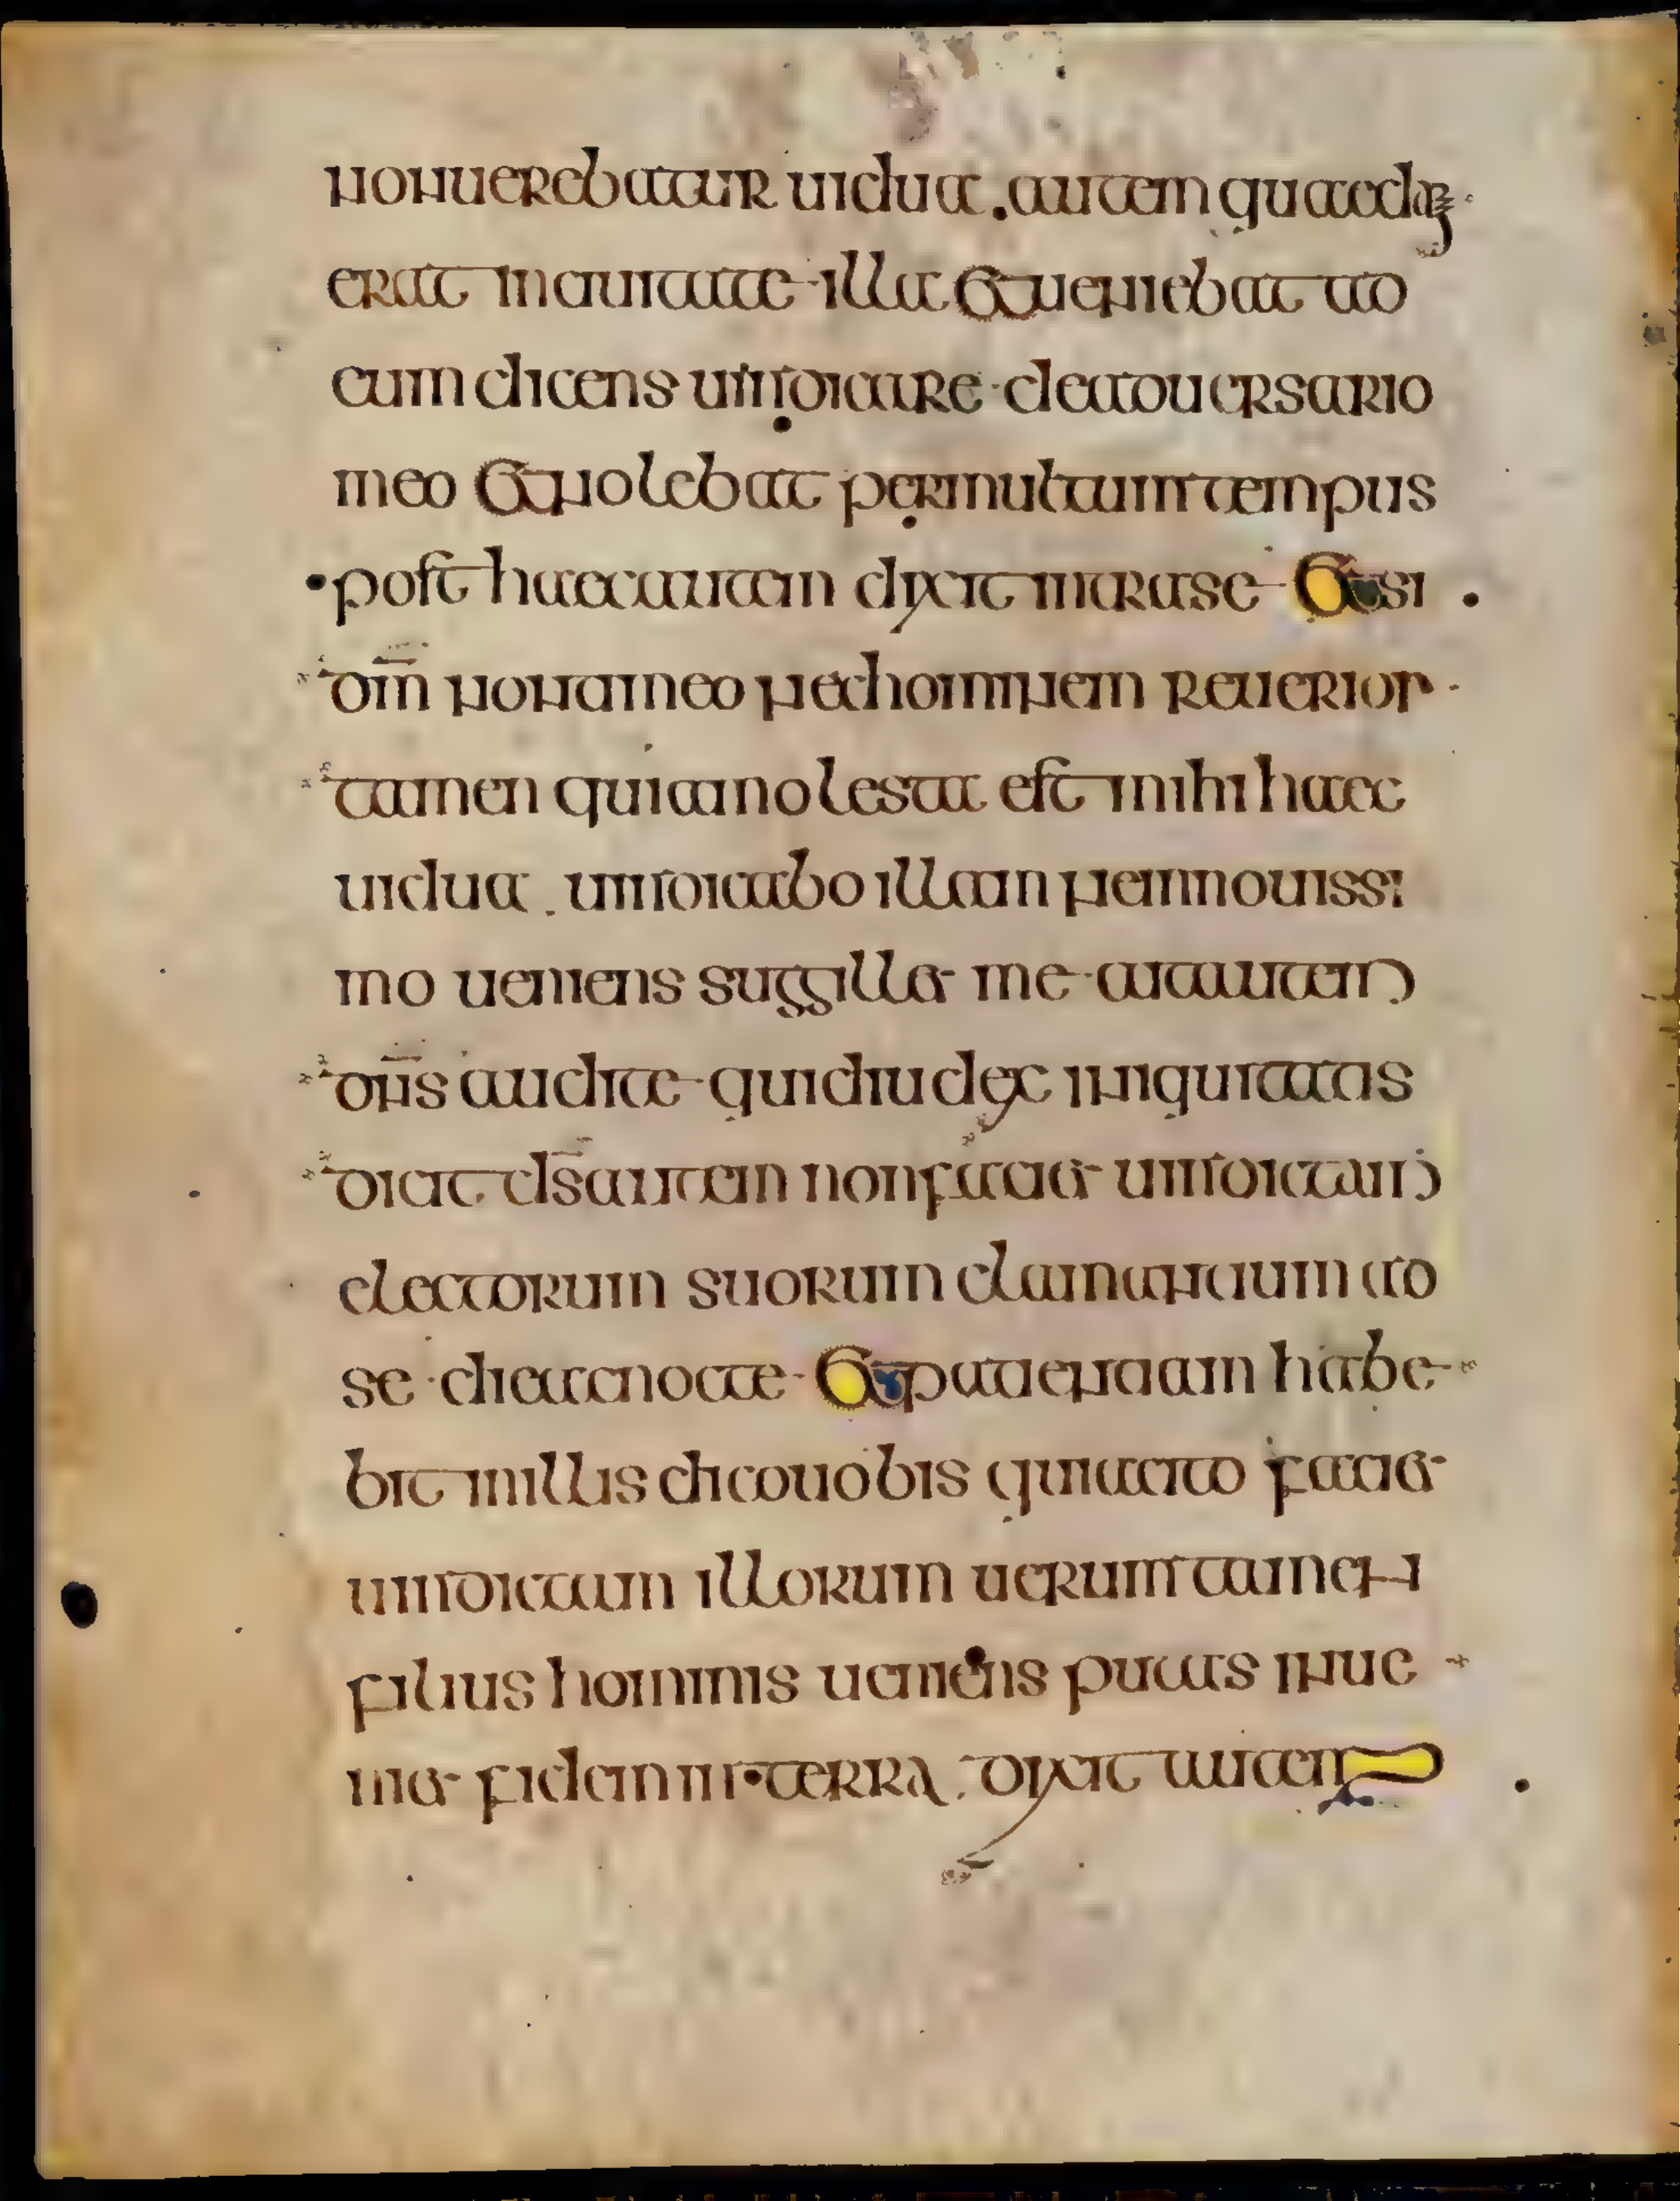 nonuerebatur uidua. autem quaedā
erat inciuitate illa &ueniebat ad
eum dicens uindicame deaduersario
meo &nolebat permultumtempus
post haecautem dixit intrase &si
dm̄ nontimeo nechominem reuerior
tamen quiamolesta est mihi haec
uidua. uindicabo illam neinnouissi
mo ueniens suggill& me aitautem
dn̄s audite quidiudex iniquitatis
dicit ds̄autem nonfaci& uindictam
electorum suorum clamantium ad
se dieacnocte &patientiam habe
bit inillis dicouobis quiacito faci&
uindictam illorum uerumtamen
filius hominis ueniens putas inue
ni& fidemin terra. dixit autem